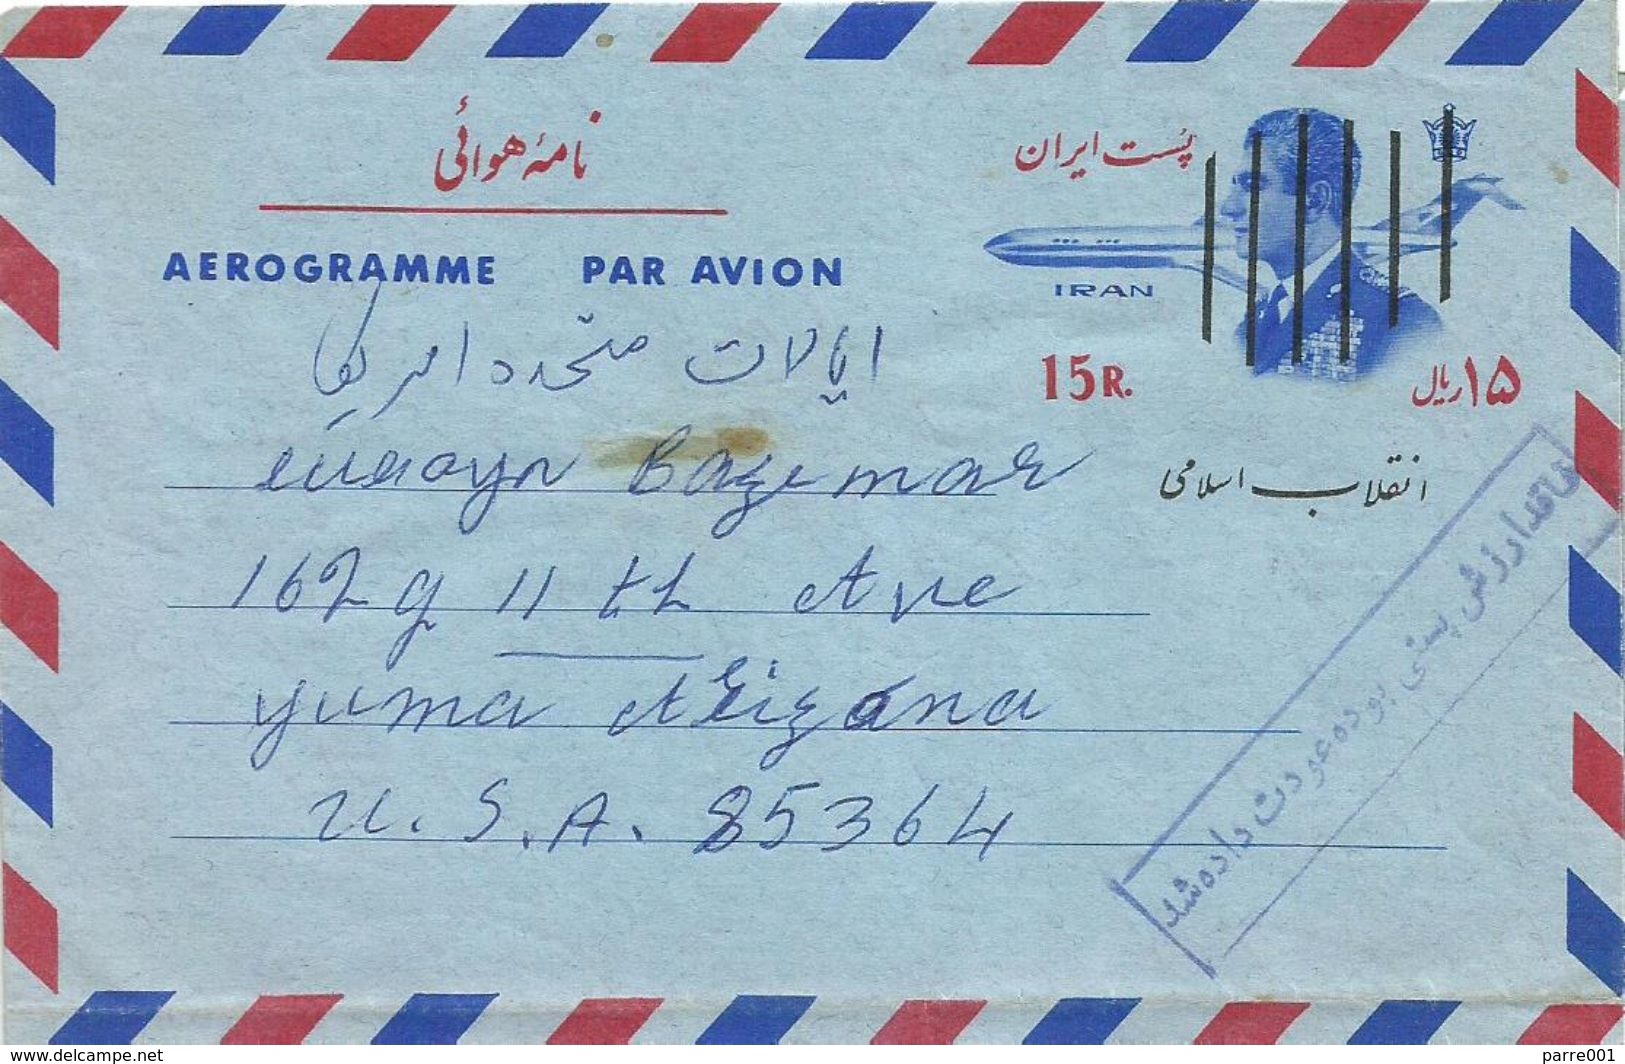 نامهٔ هوائی
پست ایران
AEROGRAMME PAR AVION
IRAN
15 R.
۱۵ ریال
ایالات متحده امریکا
Bazemar
انقلاب اسلامی
1629 11 th Ave
Yuma Arizona
U.S.A. 85364
فاقد ارزش پستی بوده عودت داده شد
www.delcampe.net
parre001